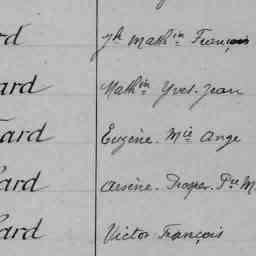 rd Jh Math.in François
ard Math.in Yves-Jean
ard Eugène-M.ie Ange
ard Arsène-Prosper-P.re M.
ard Victor François